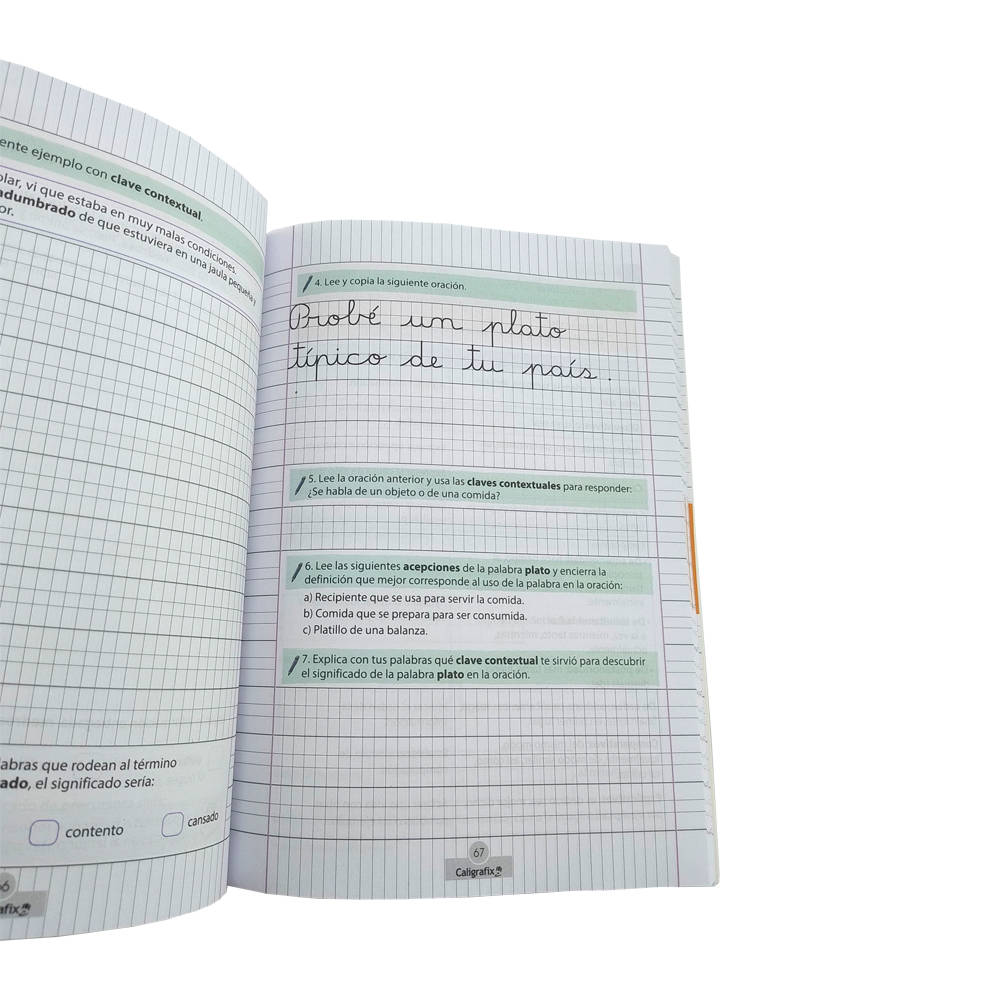 ente ejemplo con clave contextual.
vi que estaba en muy malas condiciones.
adumbrado de que estuviera en una jaula pequeña y
or.
abras que rodean al término
ado, el significado sería:
contento
cansado
4. Lee y copia la siguiente oración.
Probé un plato
típico de tu país.
5. Lee la oración anterior y usa las claves contextuales para responder:
¿Se habla de un objeto o de una comida?
6. Lee las siguientes acepciones de la palabra plato y encierra la
definición que mejor corresponde al uso de la palabra en la oración:
a) Recipiente que se usa para servir la comida.
b) Comida que se prepara para ser consumida.
c) Platillo de una balanza.
7. Explica con tus palabras qué clave contextual te sirvió para descubrir
el significado de la palabra plato en la oración.
67
Caligrafix